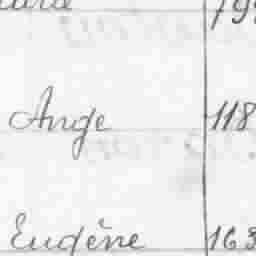 Ange 118
Eugène 163